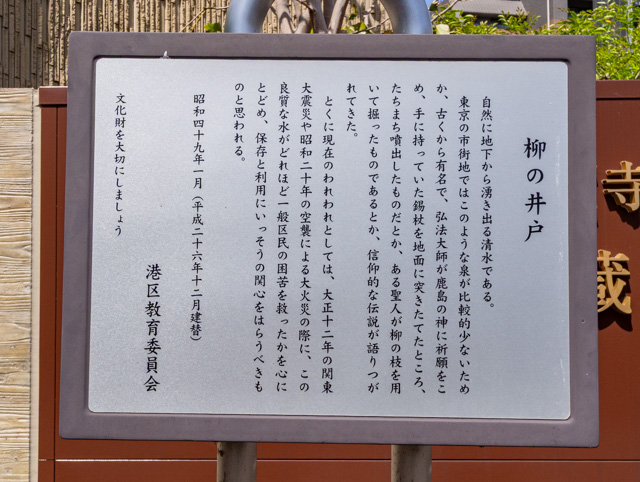 柳の井戸
自然に地下から湧き出る清水である。
東京の市街地ではこのような泉が比較的少ないため
か、古くから有名で、弘法大師が鹿島の神に祈願をこ
め、手に持っていた錫杖を地面に突きたてたところ、
たちまち噴出したものだとか、ある聖人が柳の枝を用
いて掘ったものであるとか、信仰的な伝説が語りつが
れてきた。
とくに現在のわれわれとしては、大正十二年の関東
大震災や昭和二十年の空襲による大火災の際に、この
良質な水がどれほど一般区民の困苦を救ったかを心に
とどめ、保存と利用にいっそうの関心をはらうべきも
のと思われる。
昭和四十九年一月（平成二十六年十二月建替）
港区教育委員会
文化財を大切にしましょう
寺
蔵